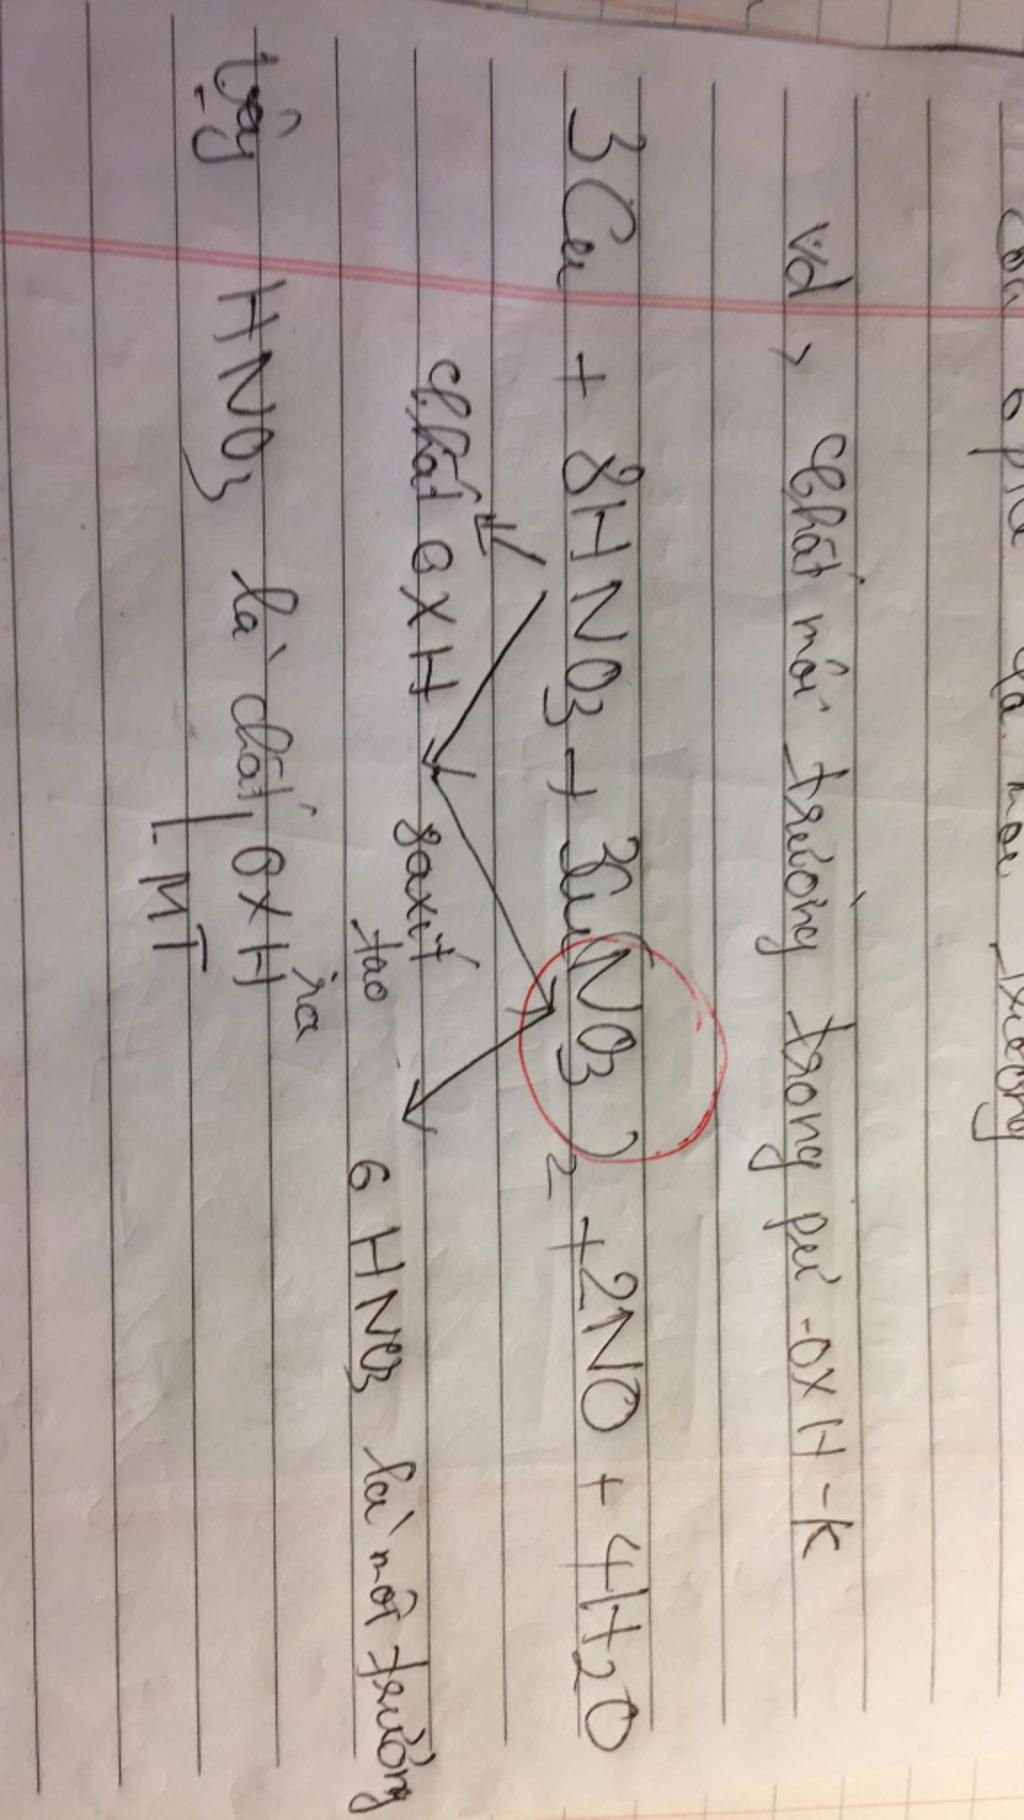 vd > chất môi trường trong pứ -OXH-K
3Cu + 8HNO3 + 3Cu(NO3)2 + 2NO + 4H2O
chất OXH 8axit
tạo ra 6HNO3 là môi trường
Vậy HNO3 là chất OXH
MT